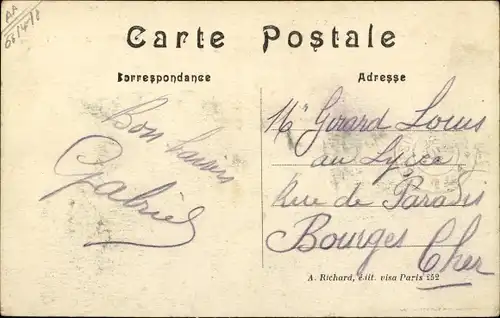 Carte Postale
Correspondance
Adresse
Bon baisers
Gabriel
Mr Girard Louis
au Lycée
Rue de Paradis
Bourges Cher
A. Richard, édit. visa Paris 252